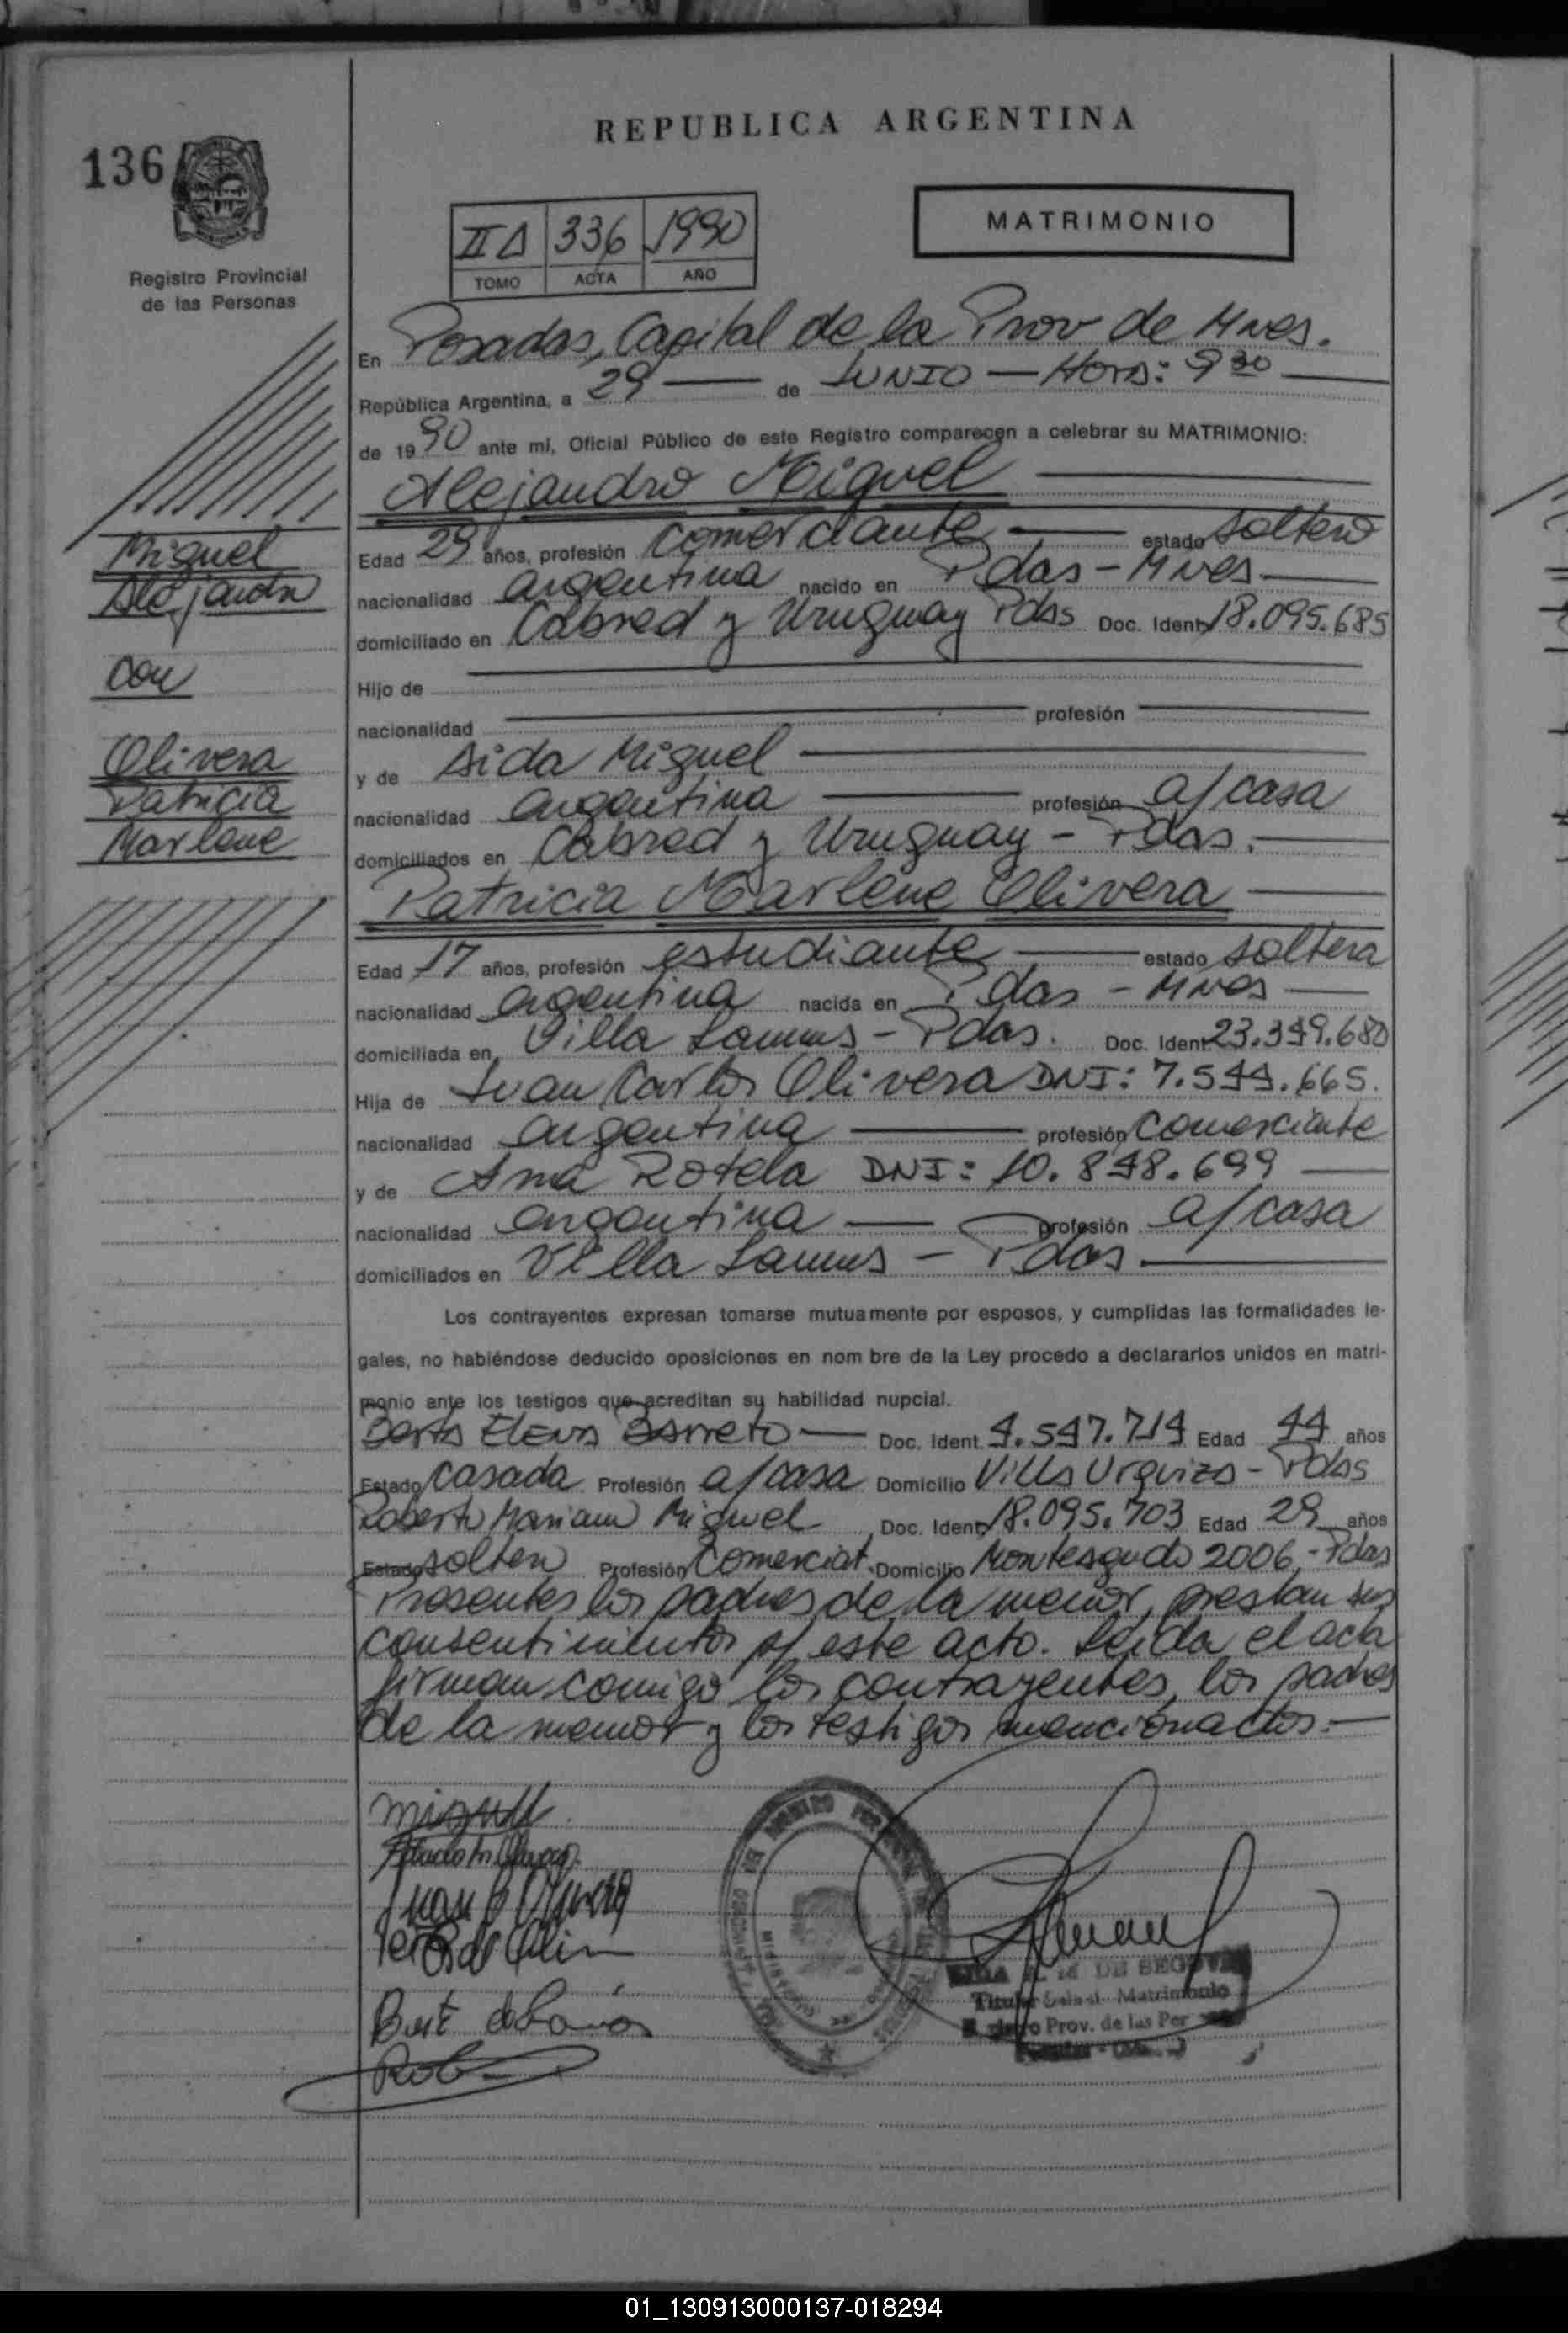 REPUBLICA ARGENTINA
136
MATRIMONIO
II Δ 336 1990
TOMO ACTA AÑO
Registro Provincial
de las Personas
En Posadas, Capital de la Prov de Mnes.
República Argentina, a 29 de JUNIO - Hora: 9 30
de 1990 ante mi, Oficial Público de este Registro comparecen a celebrar su MATRIMONIO:
Alejandro Miguel
Edad 29 años, profesión comerciante estado soltero
nacionalidad argentina nacido en Pdas - Mnes
domiciliado en Cabred y Uruguay Pdas Doc. Ident. 18.095.685
Hijo de
nacionalidad profesión
y de Aida Miguel
nacionalidad argentina profesión a/casa
domiciliados en Cabred y Uruguay - Pdas.
Patricia Marlene Olivera
Edad 17 años, profesión estudiante estado soltera
nacionalidad argentina nacida en Pdas - Mnes
domiciliada en Villa Lanus - Pdas. Doc. Ident. 23.349.680
Hija de Juan Carlos Olivera DNI: 7.544.665.
nacionalidad argentina profesión Comerciante
y de Ana Rotela DNI: 10.848.699
nacionalidad argentina profesión a/casa
domiciliados en Villa Lanus - Pdas
Miguel
Alejandro
con
Olivera
Patricia
Marlene
Los contrayentes expresan tomarse mutuamente por esposos, y cumplidas las formalidades le-
gales, no habiéndose deducido oposiciones en nom bre de la Ley procedo a declararlos unidos en matri-
monio ante los testigos que acreditan su habilidad nupcial.
Berta Elena Barreto Doc. Ident. 4.547.714 Edad 44 años
Estado casada Profesión a/casa Domicilio Villa Urquiza - Pdas
Roberto Mariano Miguel Doc. Ident. 18.095.703 Edad 29 años
Estado soltero Profesión Comerciat. Domicilio Monteagudo 2006 - Pdas
Presentes los padres de la menor, prestan sus
consentimientos p/ este acto. Leida el acta
firman comigo los contrayentes, los padres
de la menor y los testigos mencionados.-
Miguel
DE SEGOVIA
Titular Matrimonio
Prov. de las Per
01_130913000137-018294